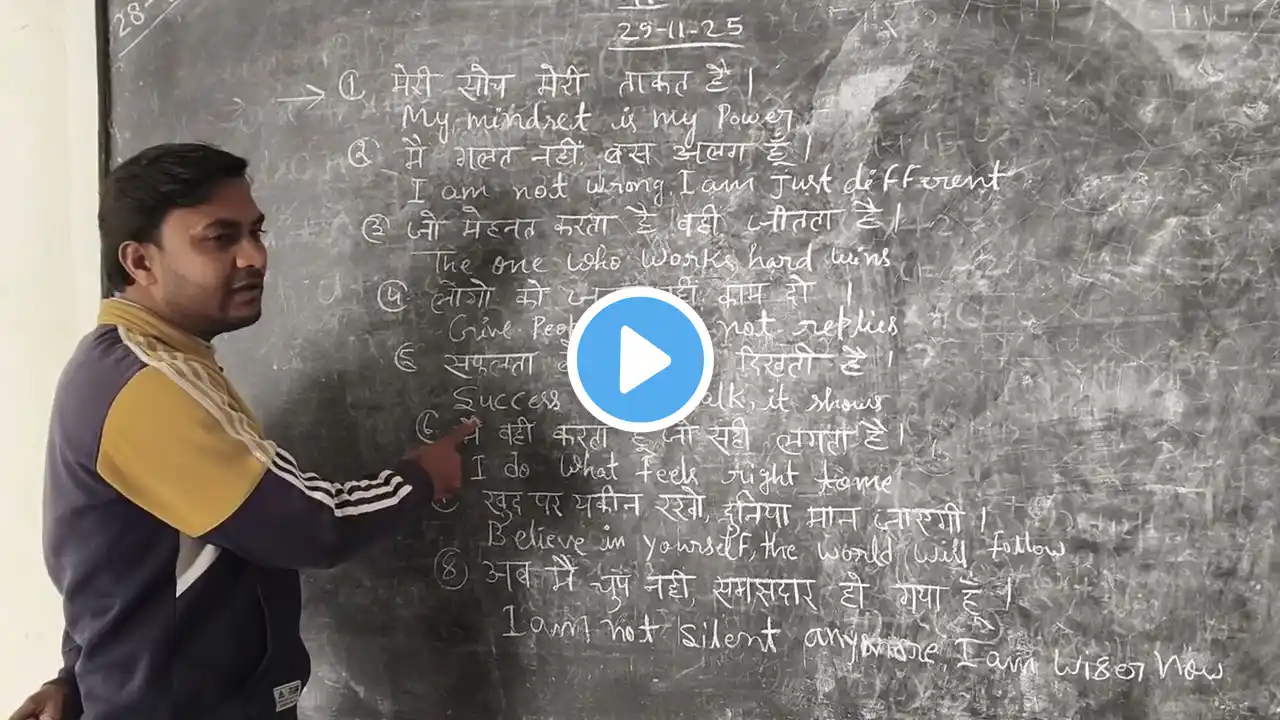 28-
29-11-25
H.W.
→ ① मेरी सोच मेरी ताकत है।
My mindset is my Power
② मै गलत नहीं, बस अलग हूँ।
I am not wrong, I am just different
③ जो मेहनत करता है वही जीतता है।
The one who works hard wins
④ लोगो को काम दो ।
Give not replies
सफलता दिखती है ।
Success it shows
⑥ मै वही करता हूँ जो सही लगता है।
I do what feels right to me
खुद पर यकीन रखो, दुनिया मान जाएगी ।
Believe in yourself, the world will follow
⑧ अब मैं चुप नही, समझदार हो गया हूँ ।
I am not silent anymore, I am wiser now